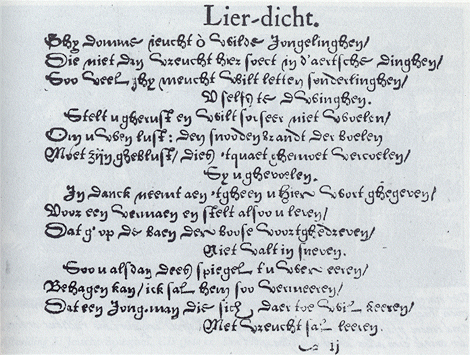 Lier-dicht.
Ghy domme ieucht ò wilde Jongelinghen/
Die niet dan vreucht hier soect in d'aertsche dinghen/
Soo veel ghy meucht wilt letten sonderlinghen/
V selfs te dwinghen.
Stelt u gherust en wilt soo seer niet woelen/
Om u wen lust: den snooden brandt der boelen
Moet zijn gheblust/ dies 'tquaet ghemoet vercoelen/
Sy u ghevoelen.
In danck neemt aen 'tgheen u hier wort ghegeven/
Voor een vermaen en stelt alsoo u leven/
Dat g' op de baen der boose voortghedreven/
Niet valt in sneven.
Soo u alsdan dees spiegel t'uwer eeren/
Behagen kan/ ick sal hem soo vermeeren/
Dat een Jong-man die sich daer toe wil keeren/
Met vreucht sal leeren.
ij